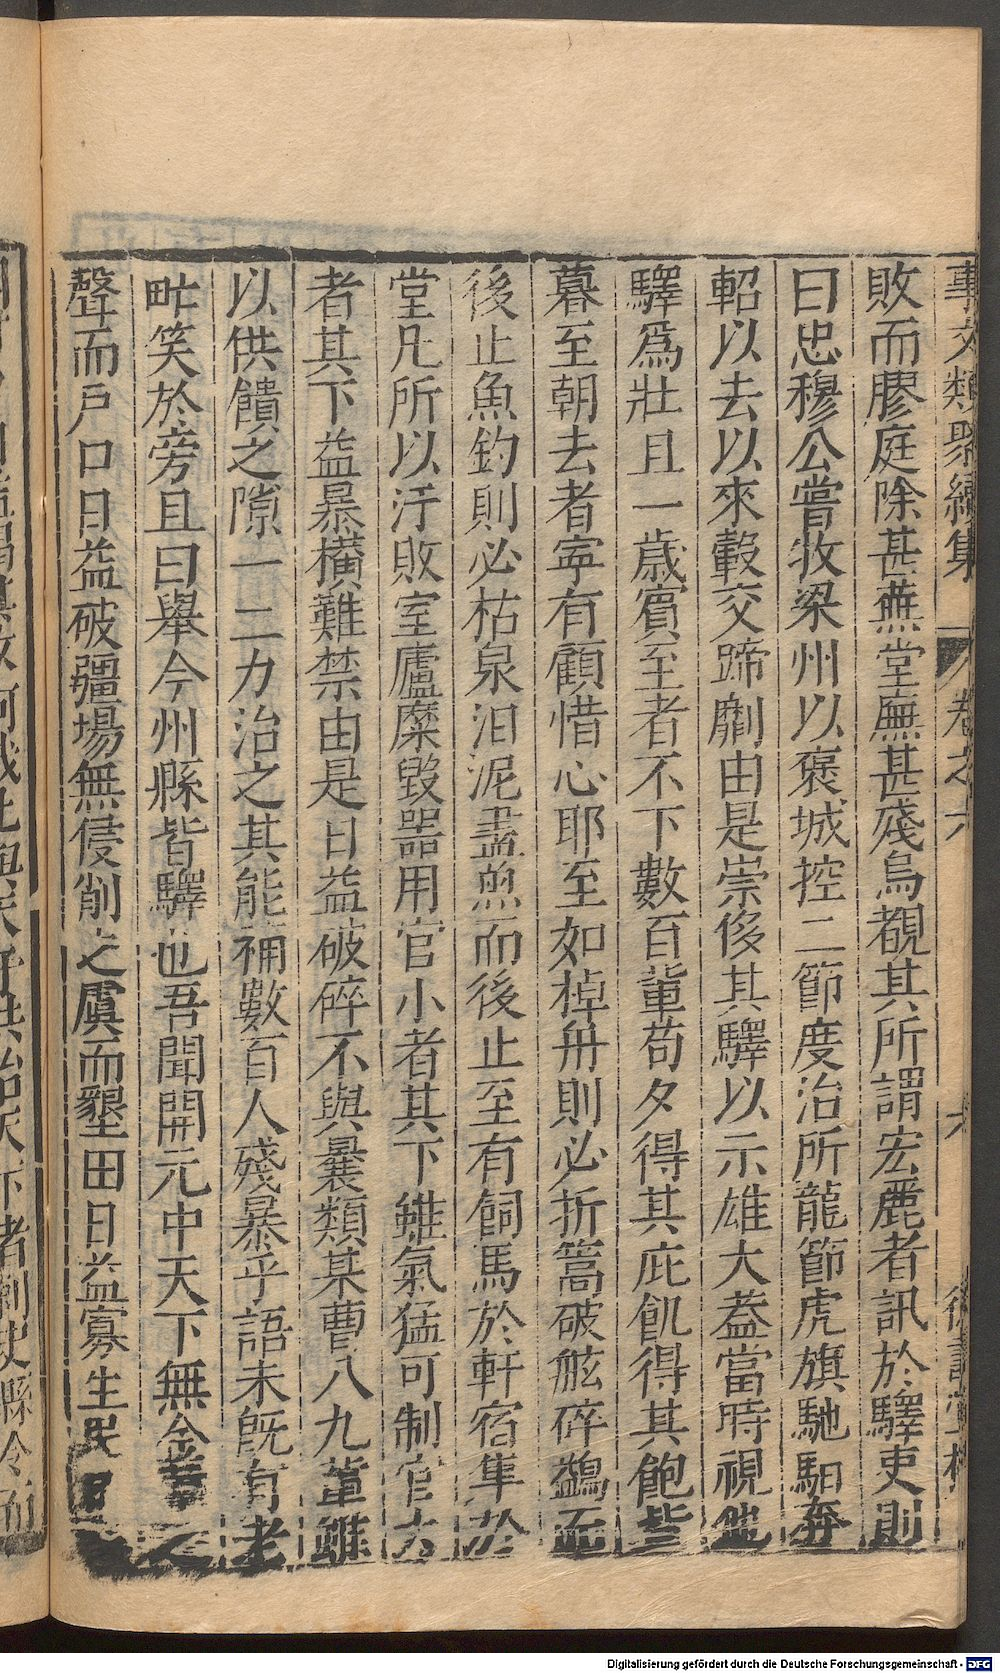 事文類聚續集 卷之六 六
敗而膠庭除甚蕪堂廡甚殘烏覩其所謂宏麗者訊於驛吏則
曰忠穆公嘗牧梁州以褒城控二節度治所龍節虎旗馳馹奔
軺以去以來轂交蹄劘由是崇侈其驛以示雄大蓋當時視他
驛爲壯且一歲賓至者不下數百軰苟夕得其庇飢得其飽皆
暮至朝去者寧有顧惜心耶至如棹舟則必折篙破舷碎鷁而
後止魚釣則必枯泉汨泥盡魚而後止至有飼馬於軒宿隼於
堂凡所以汙敗室廬糜毀噐用官小者其下雖氣猛可制官大
者其下益暴橫難禁由是日益破碎不與曩類某曹八九輩雖
以供饋之隙一二力治之其能補數百人殘暴乎語未旣有老
甿笑於旁且曰舉今州縣皆驛也吾聞開元中天下無金革之
聲而戶口日益破疆場無侵削之虞而墾田日益寡生民
Digitalisierung gefördert durch die Deutsche Forschungsgemeinschaft - DFG